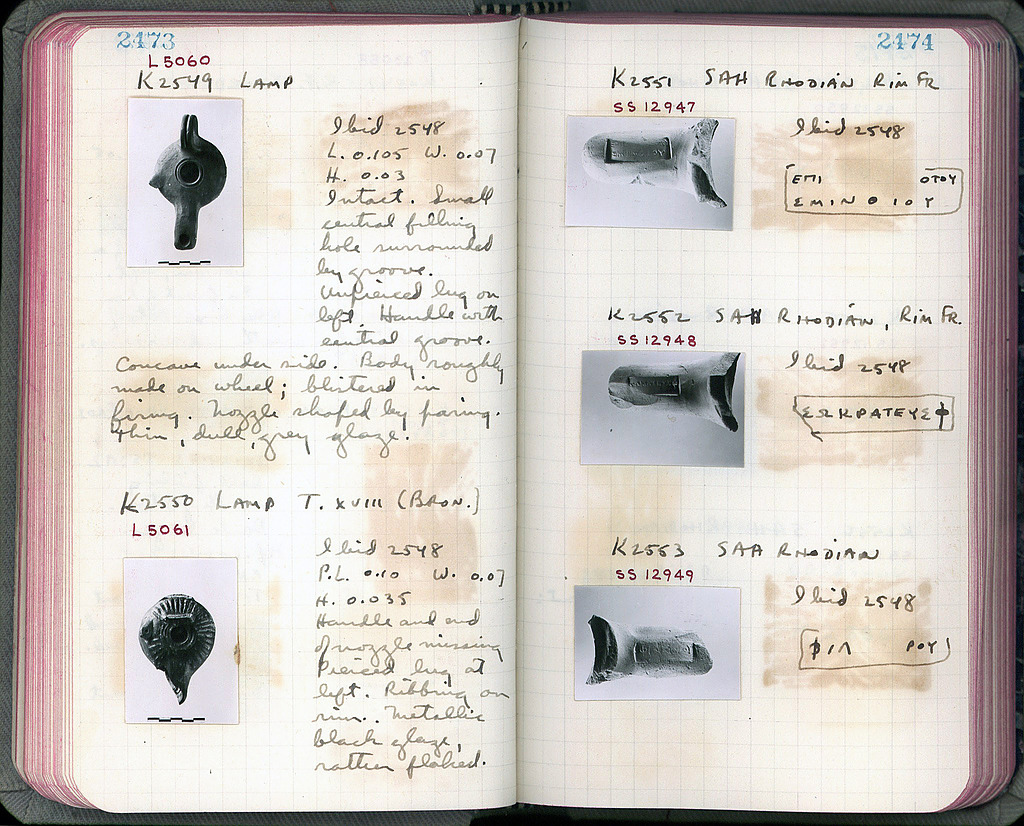 2473
L5060
K2549 LAMP
Ibid 2548
L. 0.105 W. 0.07
H. 0.03
Intact. Small
central filling
hole surrounded
by groove.
Unpierced lug on
left. Handle with
central groove.
Concave under side. Body roughly
made on wheel; blistered in
firing. Nozzle shaped by paring.
Thin, dull, grey glaze.
K2550 LAMP T. XVIII (BRON.)
L5061
Ibid 2548
P.L. 0.10 W. 0.07
H. 0.035
Handle and end
of nozzle missing
Pierced lug at
left. Ribbing on
rim. Metallic
black glaze,
rather flaked.
2474
K2551 SAH RHODIAN RIM FR
SS 12947
Ibid 2548
ΕΠΙ ΟΤΟΥ
ΣΜΙΝΘΙΟΥ
K2552 SAH RHODIAN, RIM FR.
SS 12948
Ibid 2548
ΣΩΚΡΑΤΕΥΣ
K2553 SAH RHODIAN
SS 12949
Ibid 2548
ΦΙΛ ΡΟΥ